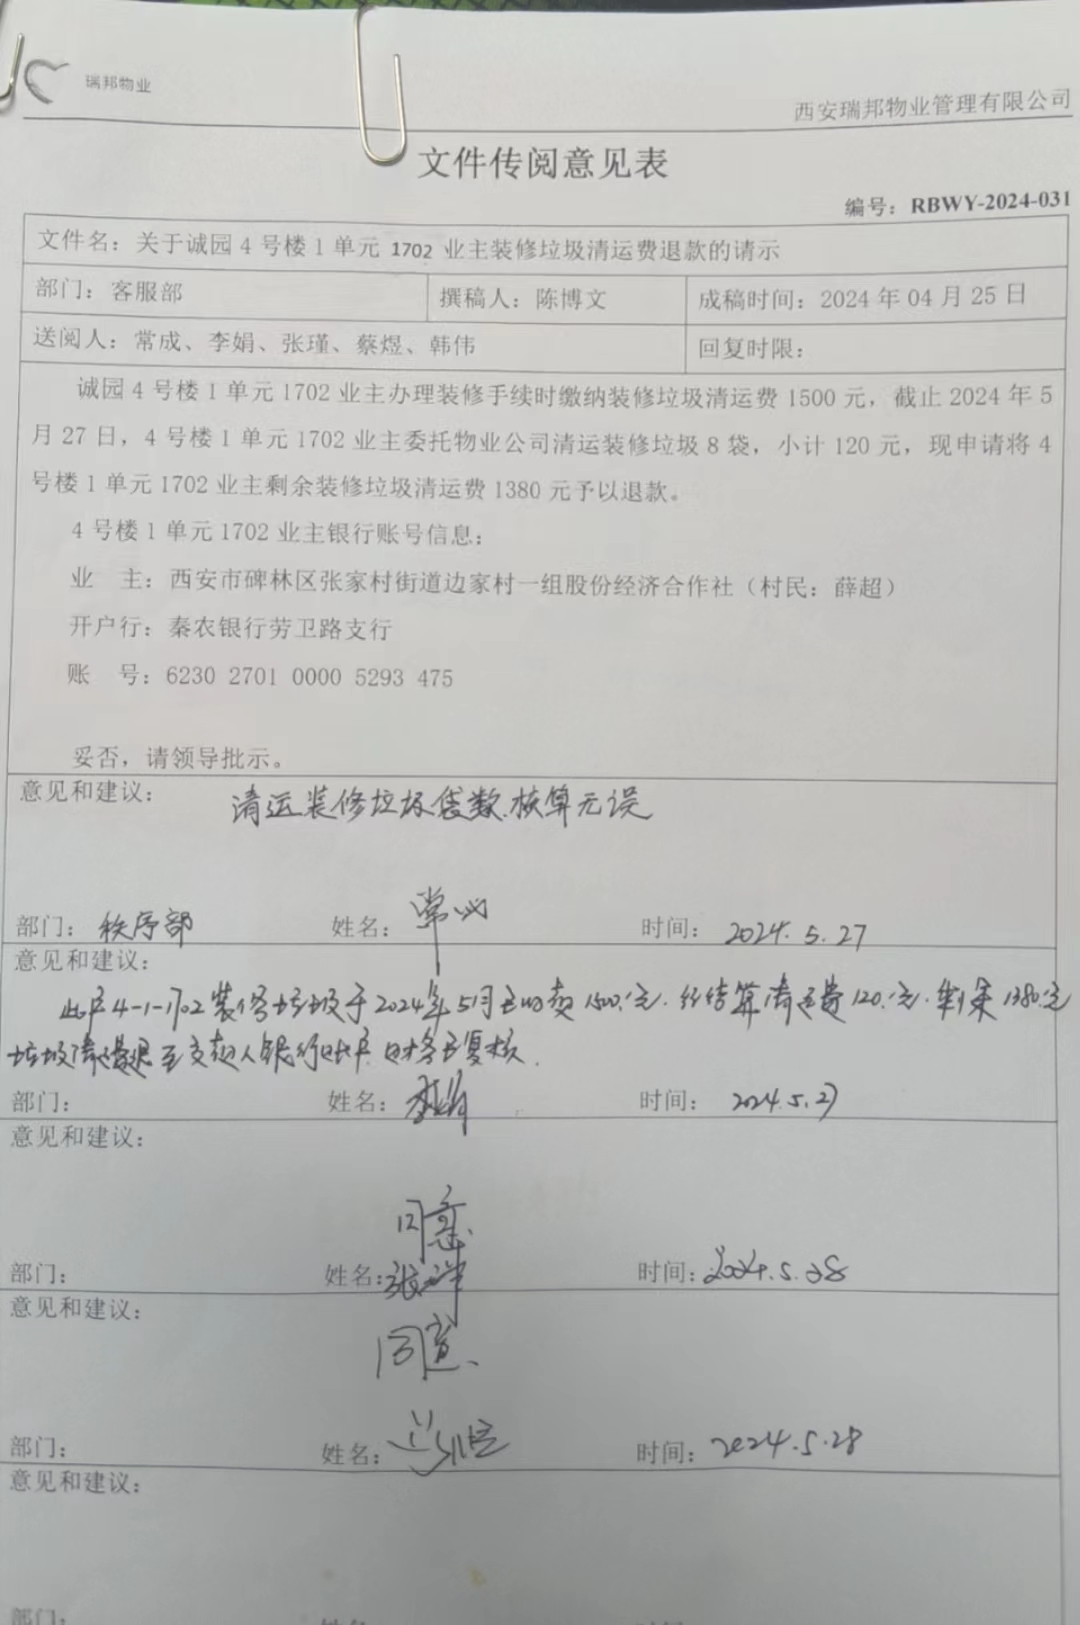 瑞邦物业
西安瑞邦物业管理有限公司
文件传阅意见表
编号：RBWY-2024-031
文件名：关于诚园4号楼1单元 1702 业主装修垃圾清运费退款的请示
部门：客服部 撰稿人：陈博文 成稿时间：2024年04月25日
送阅人：常成、李娟、张瑾、蔡煜、韩伟 回复时限：
诚园4号楼1单元1702业主办理装修手续时缴纳装修垃圾清运费1500元，截止2024年5
月27日，4号楼1单元1702业主委托物业公司清运装修垃圾8袋，小计120元，现申请将4
号楼1单元1702业主剩余装修垃圾清运费1380元予以退款。
4号楼1单元1702业主银行账号信息：
业 主：西安市碑林区张家村街道边家村一组股份经济合作社（村民：薛超）
开户行：秦农银行劳卫路支行
账 号：6230 2701 0000 5293 475
妥否，请领导批示。
意见和建议：
清运装修垃圾袋数.核算无误
部门：秩序部 姓名： 时间：2024.5.27
意见和建议：
此户4-1-1702装修垃圾于2024年5月 1500.元.经结算清运费120.元.剩余1380.元
垃圾清运 退至交款人银行账户.财务已复核.
部门： 姓名：李娟 时间：2024.5.27
意见和建议：
同意
部门： 姓名： 时间：2024.5.28
意见和建议：
同意、
部门： 姓名： 时间：2024.5.28
意见和建议：
部门：